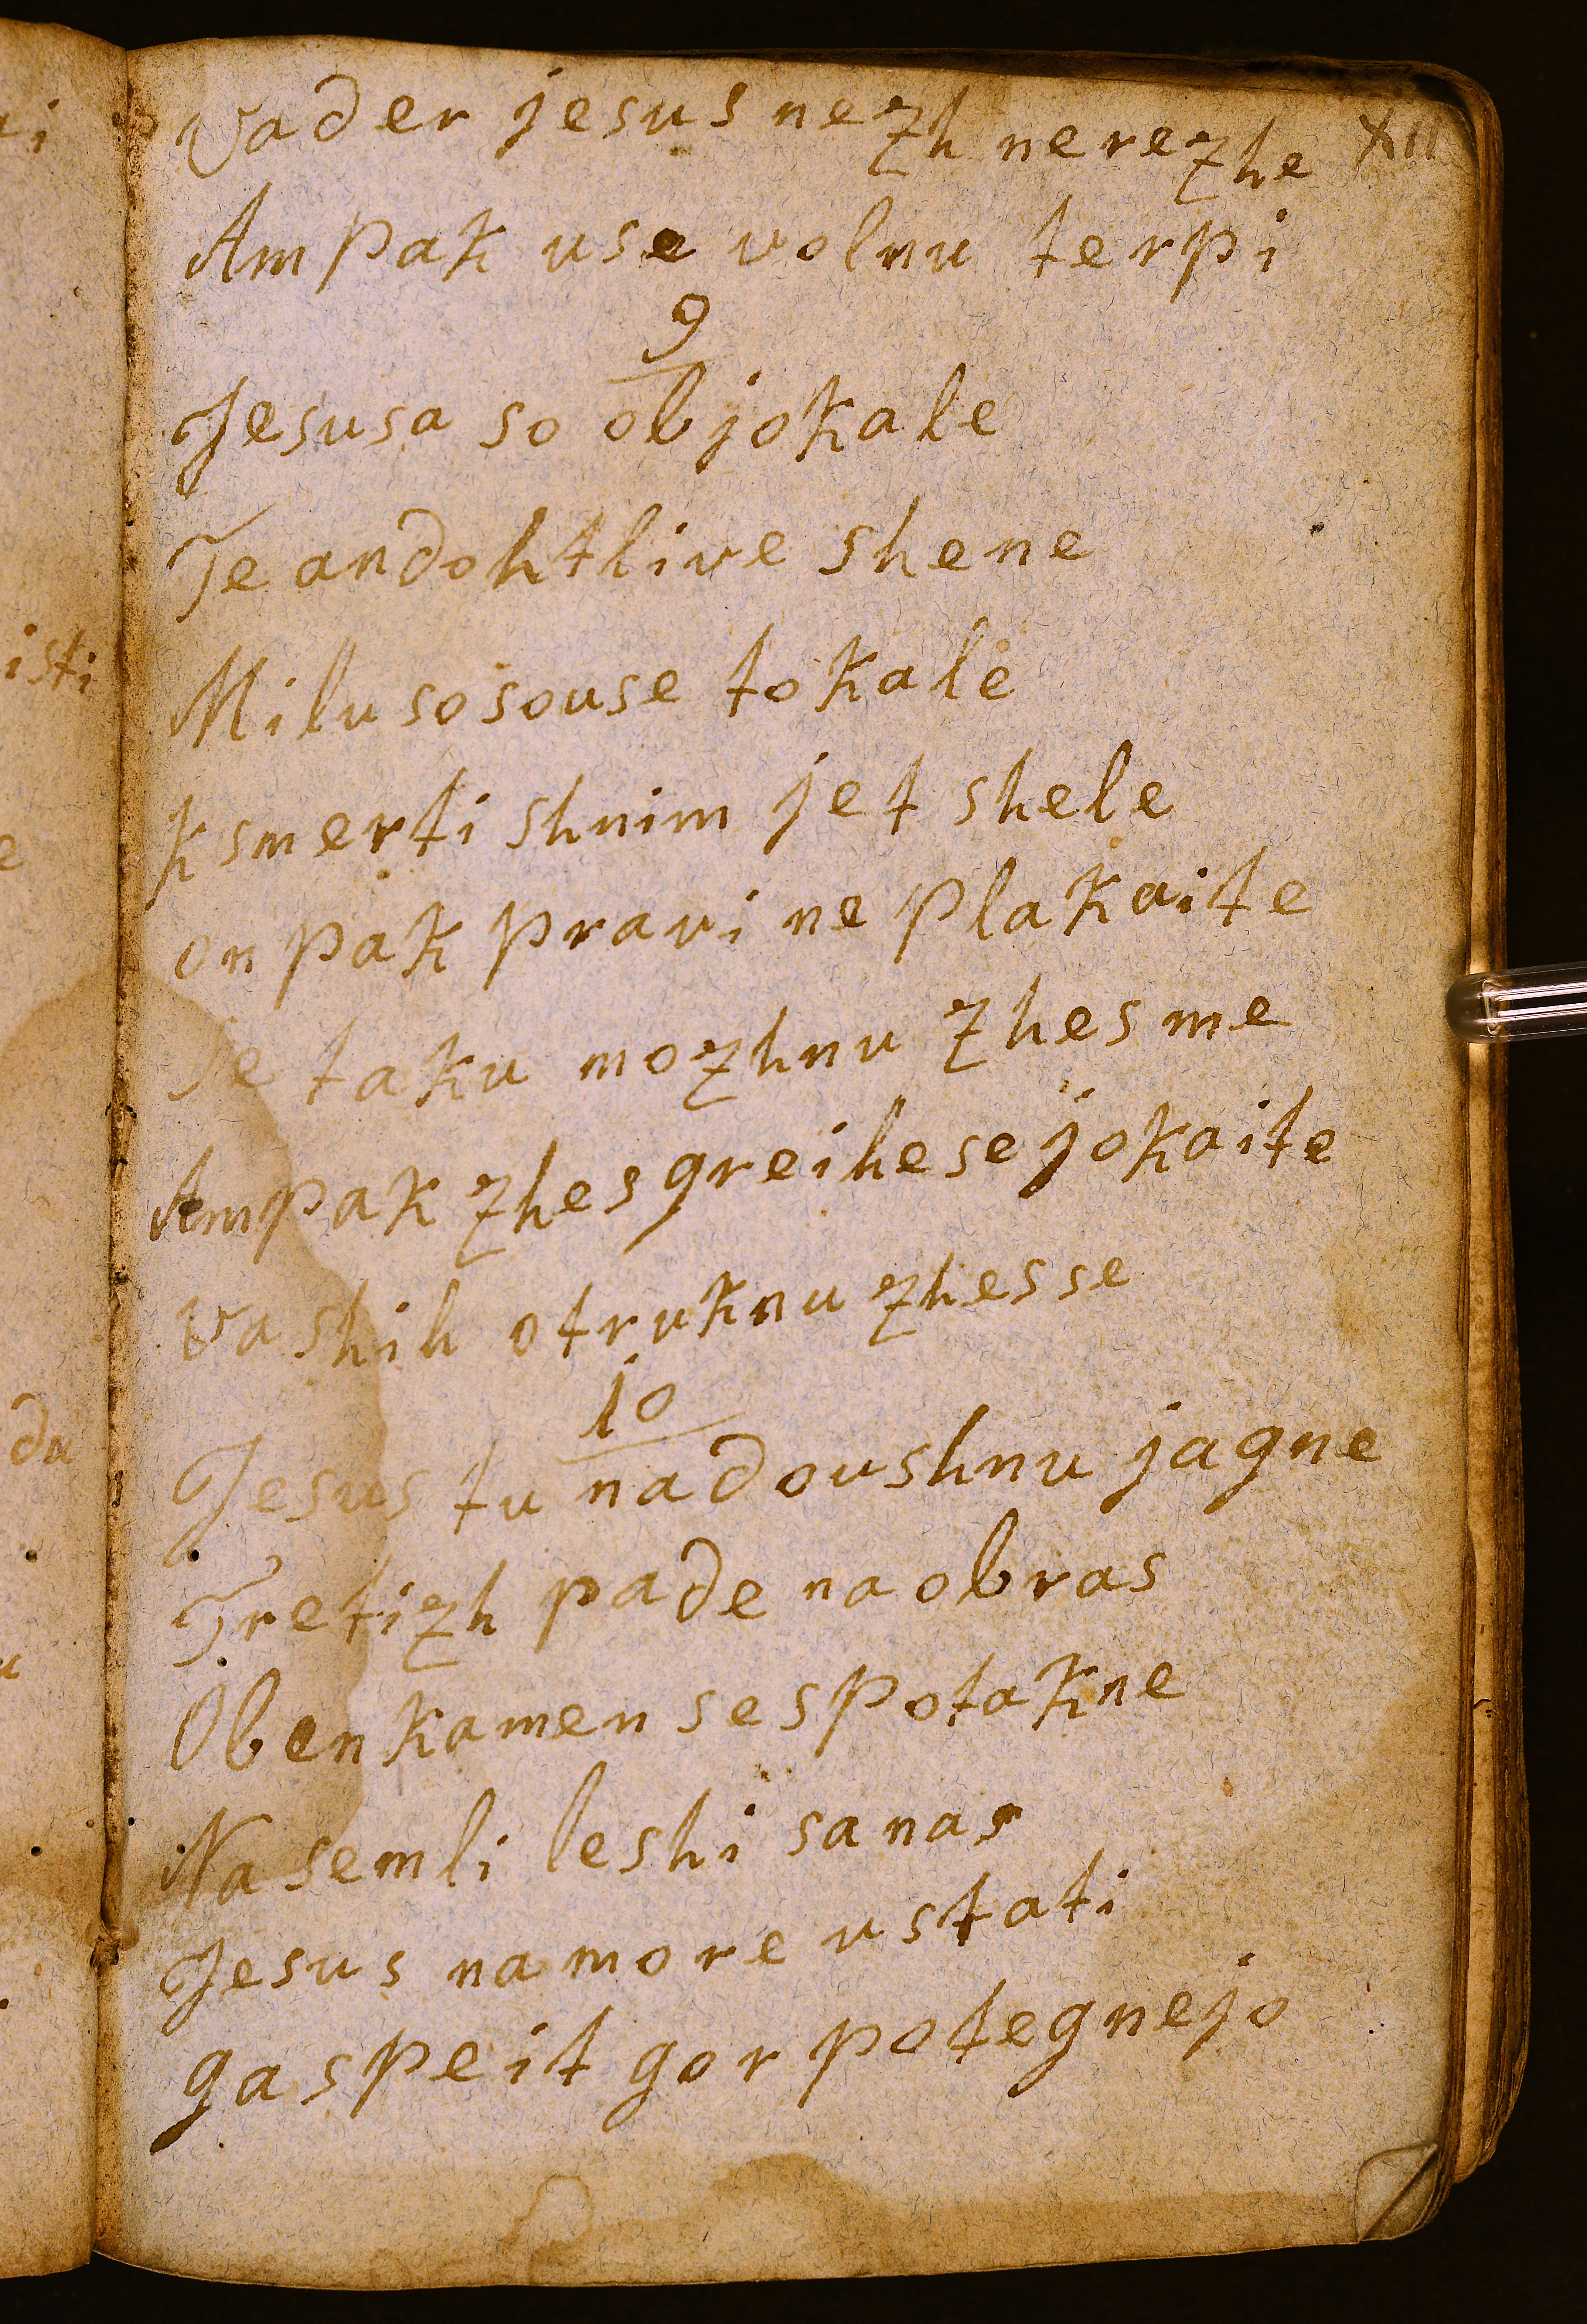 Vader jesus nezh nerezhe XII
Ampak use volnu terpi
9
Jesusa so objokale
Te andohtlive shene
Milu so souse tokale
k smerti shnim jet shele
on pak pravi ne plakaite
Je taku mozhnu zhes me
Ampak zhes greihe se jokaite
vashih otruknu zhes se
10
Jesus tu nadoushnu jagne
Tretizh pade na obras
Oben kamen se spotakne
Na semli leshi sa nas
Jesus na more ustati
ga speit gor potegnejo